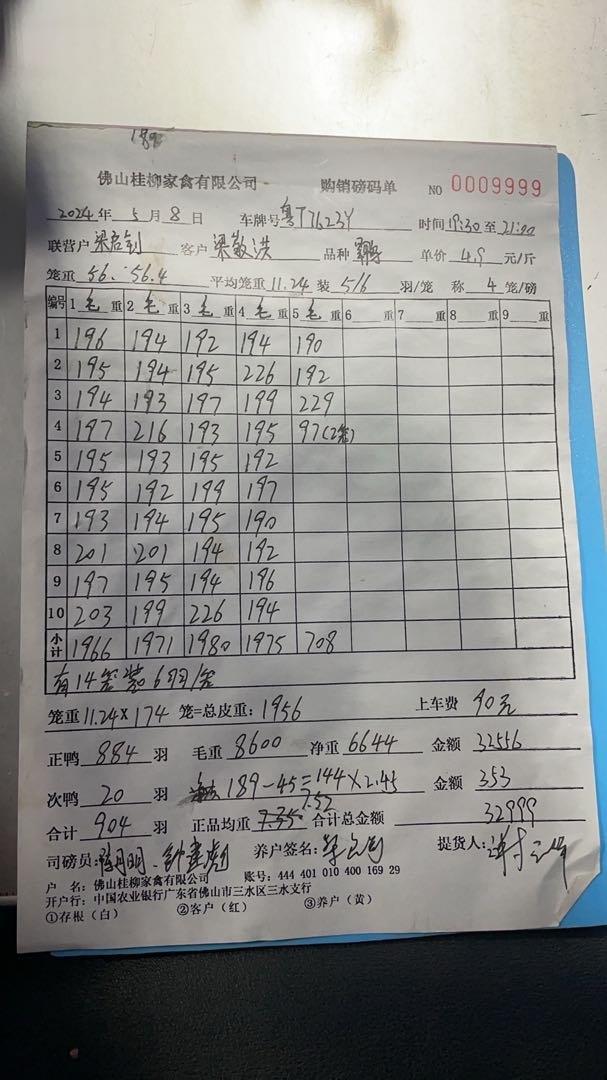 佛山桂柳家禽有限公司 购销磅码单 NO 0009999
2024年 5月 8日 车牌号 粤T7622Y 时间 19:30至21:00
联营户 梁启钊 客户 梁敬洪 品种 单价 4.9 元/斤
笼重 56. 56.4 平均笼重 11.24 装 5/6 羽/笼 称 4 笼/磅
编号 1毛重 2毛重 3毛重 4毛重 5毛重 6 重 7 重 8 重 9 重
1 196 194 192 194 190
2 195 194 195 226 192
3 194 193 197 199 229
4 197 216 193 195 97(2笼)
5 195 193 195 192
6 195 192 199 197
7 193 194 195 190
8 201 201 194 192
9 197 195 194 196
10 203 199 226 194
小计 1966 1971 1980 1975 708
有14笼装6羽/笼
笼重 11.24×174 笼=总皮重: 1956 上车费 90元
正鸭 884 羽 毛重 8600 净重 6644 金额 32556
次鸭 20 羽 189-45=144×2.45 金额 353
合计 904 羽 正品均重 7.35 7.52 合计总金额 32999
司磅员: 养户签名: 提货人:
户 名: 佛山桂柳家禽有限公司 账号: 444 401 010 400 169 29
开户行: 中国农业银行广东省佛山市三水区三水支行
①存根(白) ②客户(红) ③养户(黄)